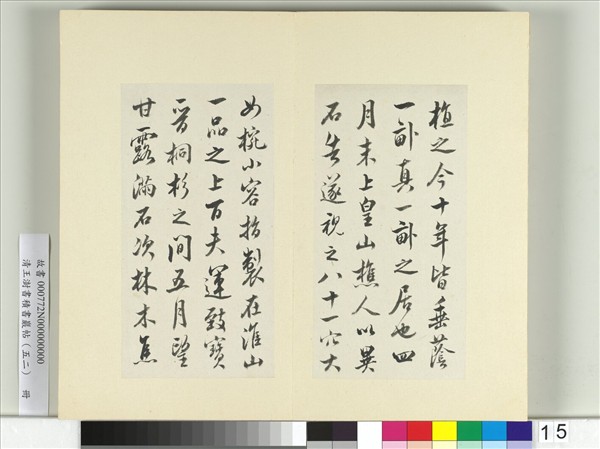 植之今十年皆垂蔭
一畝真一畝之居也四
月末上皇山樵人以異
石告遂視之八十一穴大
如椀小容指製在淮山
一品之上百夫運致寶
晉桐杉之間五月望
甘露滿石次林木蕉
故書 000772N000000000
清王澍書積書巖帖(五二) 冊
15